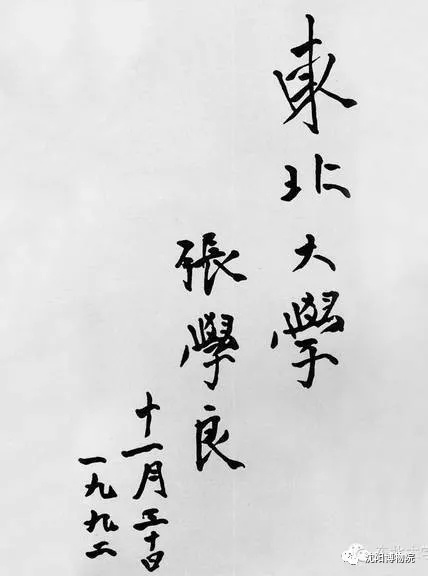 東北大學
張學良
十一月三十日
一九九二
沈阳博物院